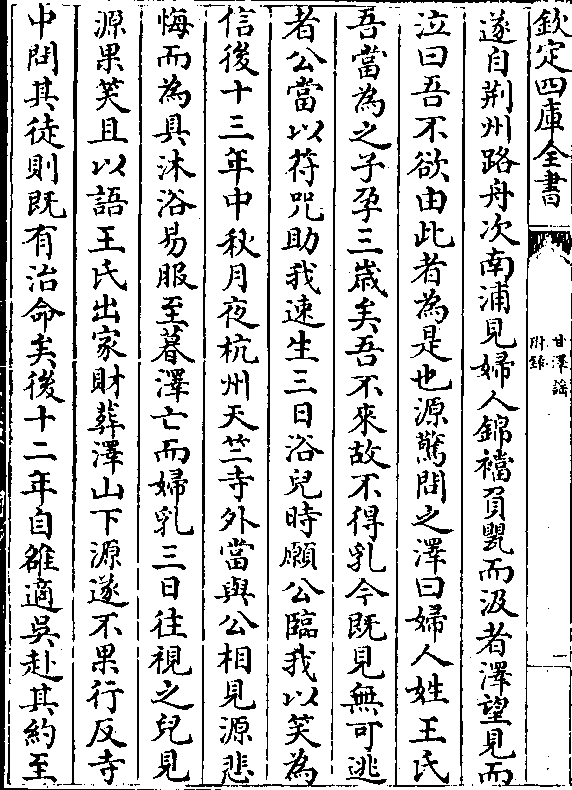 欽定四庫全書
甘澤謠
附錄
一
遂自荆州路舟次南浦見婦人錦襠負甖而汲者澤望見而
泣曰吾不欲由此者為是也源驚問之澤曰婦人姓王氏
吾當為之子孕三歲矣吾不來故不得乳今既見無可逃
者公當以符咒助我速生三日浴兒時願公臨我以笑為
信後十三年中秋月夜杭州天竺寺外當與公相見源悲
悔而為具沐浴易服至暮澤亡而婦乳三日往視之兒見
源果笑且以語王氏出家財葬澤山下源遂不果行反寺
中問其徒則既有治命矣後十二年自雒適吳赴其約至